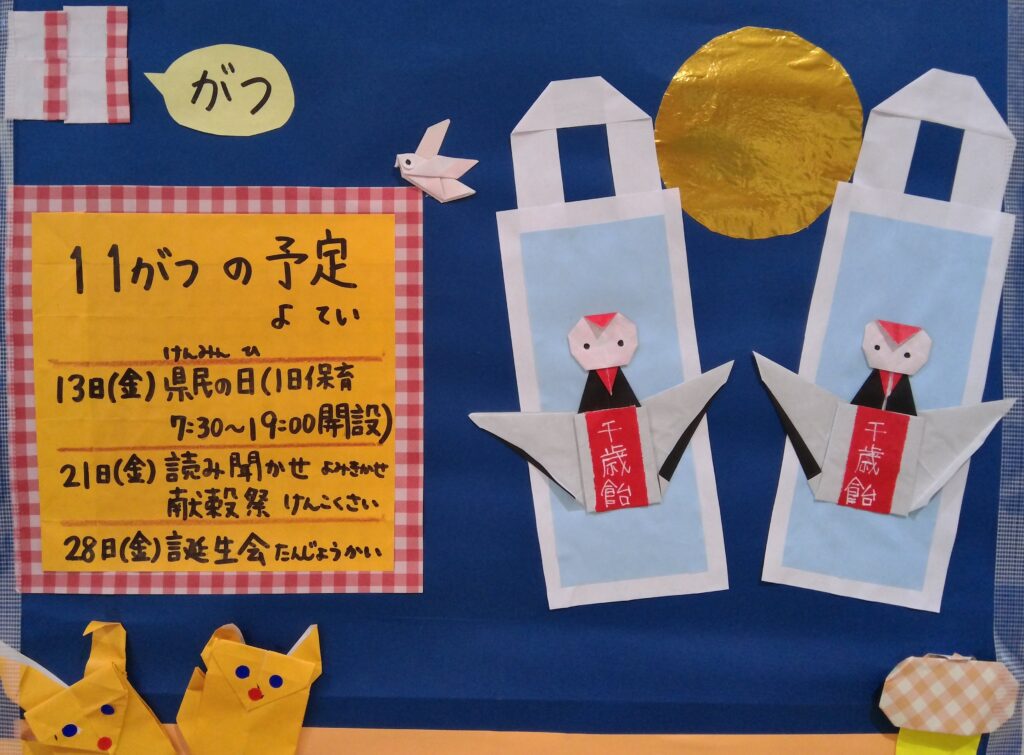 がつ
11がつの予定
よてい
けんみん ひ
13日(金)県民の日(1日保育
7:30〜19:00開設)
21日(金)読み聞かせ よみきかせ
献穀祭 けんこくさい
28日(金)誕生会 たんじょうかい
千歳飴
千歳飴